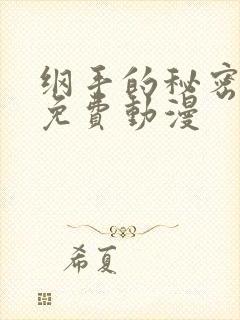 纲手的秘密
免費動漫
希夏